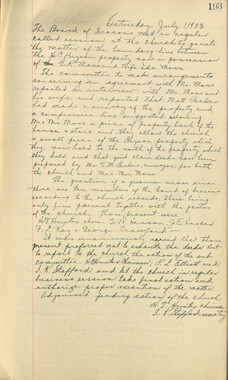 193
Saturday July 1 1933
The Board of Deacons met in regular
called session at the church to grant
the matter of the boundary line between
the H. C. Bryan property now in possession
of J. R. Moss and the Ida Moss
The committee to make arrangements
concerning an agreement with Mr. Moss
reported an interview with Mr. Moss and
his wife and reported that Matt Parker
had made a survey of the property and
a compromise line suggested allowing
Mrs. Moss a piece of property back of the
house & store and they allow the church
a small piece of the Bryan property which
they now hold to the south of the property which
they held and that quit claim deeds have been
prepared by Mr. M. Parker, surveyor, for both
the church and Mrs. Moss.
The question of a quorum arose since
there are ten members of the board of deacons
according to the church records, those living
only five present together with the pastor
of the church. Those present were
H. T. Hunter, chm.
F. C. Key & George Crawford
It was unanimously agreed that those
present preferred not to submit the deeds but
to report to the church the action of the sub
committee, H. T. Hunter Chairman, P. L. Elliott and
J. K. Stafford and let the church in regular
business session take final action and
authorize proper execution of the matter
Adjourned pending action of the church
H. T. Hunter, chairman
J. K. Stafford, secretary